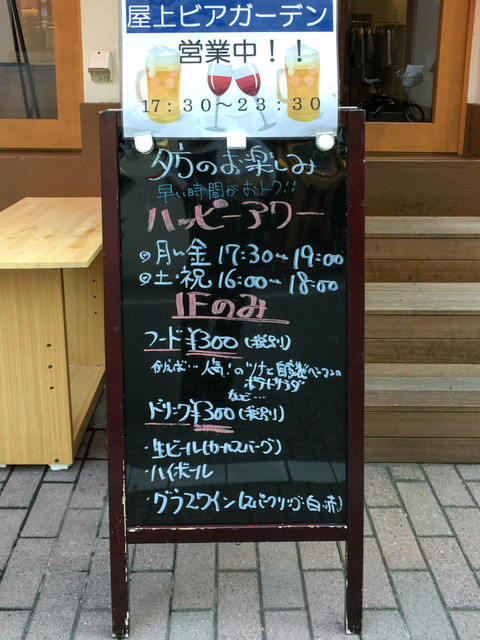 屋上ビアガーデン
営業中！！
17：30～23：30
夕方のお楽しみ
早い時間がおトク!!
ハッピーアワー
◎月～金 17:30～19:00
◎土・祝 16:00～18:00
1Fのみ
フード¥300(税別)
例えば…人気！のツナと自家製ベーコンの
ポテトサラダ
など…
ドリンク¥300(税別)
・生ビール(カールスバーグ)
・ハイボール
・グラスワイン(スパークリング・白・赤)